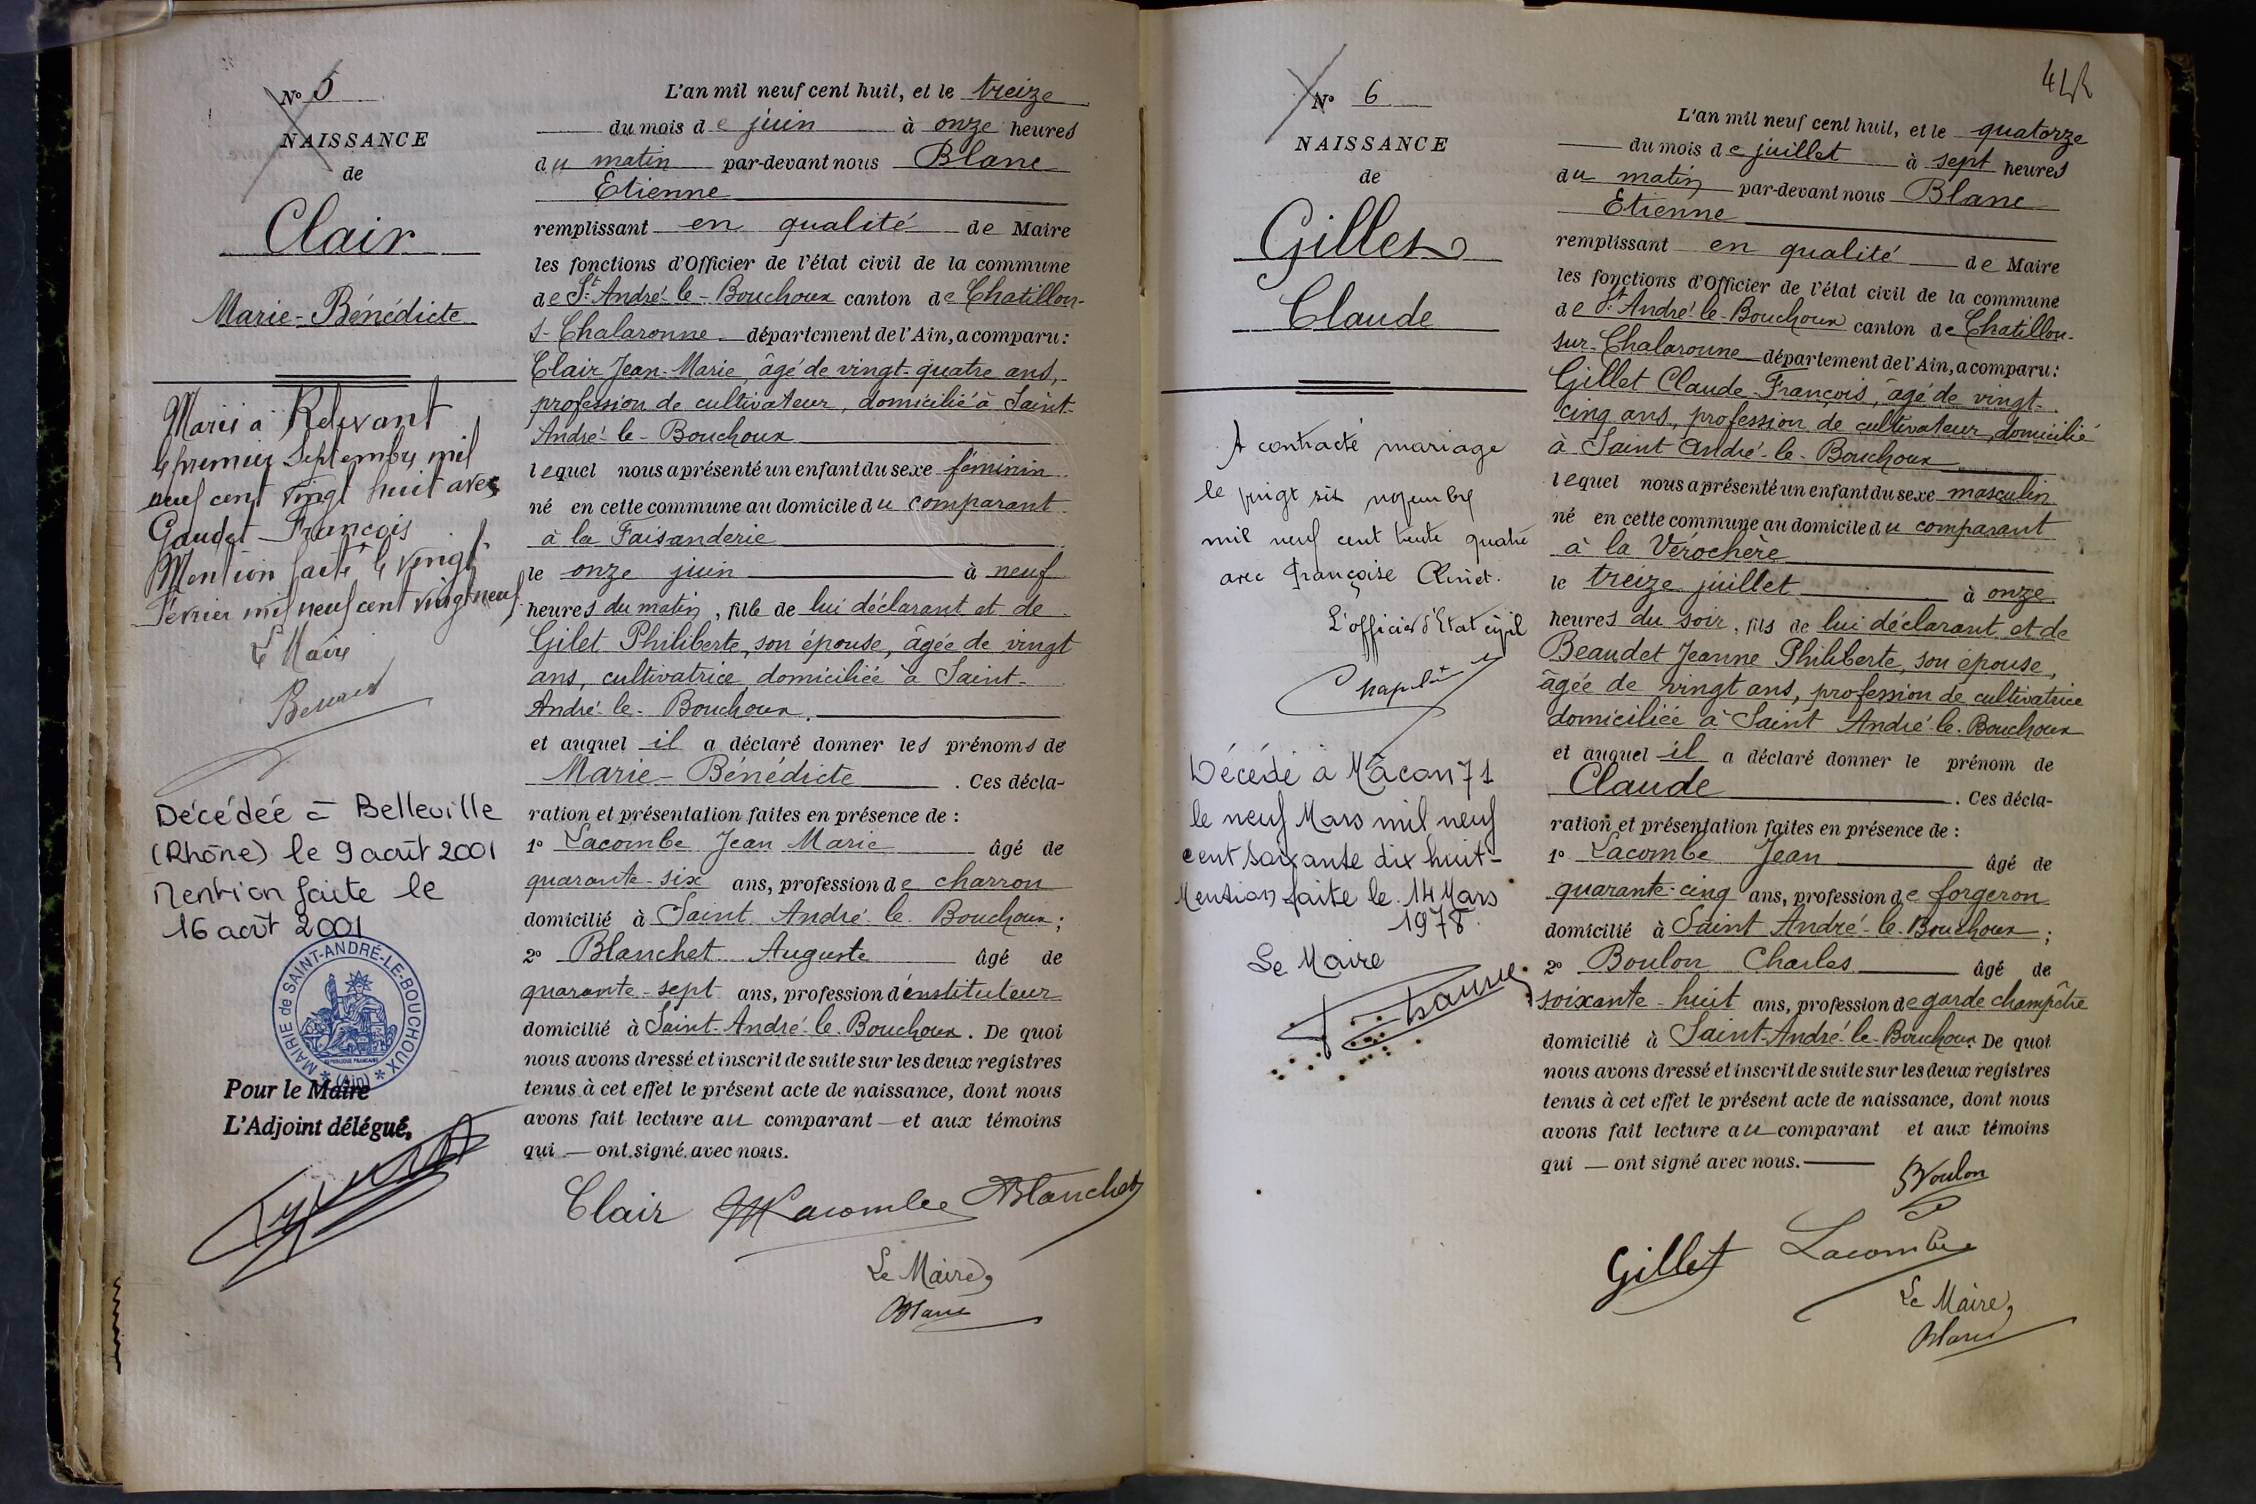 N° 5
NAISSANCE
de
Clair
Marie-Bénédicte
Mariée à Relevant
le premier Septembre mil
neuf cent vingt huit avec
Gaudet François
Mention faite le vingt
Février mil neuf cent vingt neuf
Le Maire
Décédée à Belleville
(Rhône) le 9 août 2001
Mention faite le
16 août 2001
MAIRIE de SAINT-ANDRÉ-LE-BOUCHOUX
* (Ain) *
RÉPUBLIQUE FRANÇAISE
Pour le Maire
L'Adjoint délégué,
L'an mil neuf cent huit, et le treize
du mois de juin à onze heures
du matin par-devant nous Blanc
Etienne
remplissant en qualité de Maire
les fonctions d'Officier de l'état civil de la commune
de St. André-le-Bouchoux canton de Chatillon-
s-Chalaronne département de l'Ain, a comparu:
Clair Jean-Marie, âgé de vingt-quatre ans,
profession de cultivateur, domicilié à Saint-
André-le-Bouchoux
lequel nous a présenté un enfant du sexe féminin
né en cette commune au domicile du comparant
à la Faisanderie
le onze juin à neuf
heures du matin, fille de lui déclarant et de
Gilet Philiberte, son épouse, âgée de vingt
ans, cultivatrice, domiciliée à Saint-
André-le-Bouchoux.
et auquel il a déclaré donner les prénoms de
Marie-Bénédicte. Ces décla-
ration et présentation faites en présence de :
1° Lacombe Jean Marie âgé de
quarante-six ans, profession de charron
domicilié à Saint-André-le-Bouchoux;
2° Blanchet Auguste âgé de
quarante-sept ans, profession d'instituteur
domicilié à Saint-André-le-Bouchoux. De quoi
nous avons dressé et inscrit de suite sur les deux registres
tenus à cet effet le présent acte de naissance, dont nous
avons fait lecture au comparant et aux témoins
qui — ont signé avec nous.
Clair Lacombe Blanchet
Le Maire,
Blanc
N° 6
NAISSANCE
de
Gillet
Claude
A contracté mariage
le vingt six novembre
mil neuf cent trente quatre
avec Françoise
L'officier d'Etat civil
Décédé à Mâcon 71
le neuf Mars mil neuf
cent soixante dix huit-
Mention faite le 14 Mars
1978.
Le Maire
L'an mil neuf cent huit, et le quatorze
du mois de juillet à sept heures
du matin par-devant nous Blanc
Etienne
remplissant en qualité de Maire
les fonctions d'Officier de l'état civil de la commune
de St. André-le-Bouchoux canton de Chatillon-
sur-Chalaronne département de l'Ain, a comparu:
Gillet Claude-François, âgé de vingt-
cinq ans, profession de cultivateur, domicilié
à Saint André-le-Bouchoux
lequel nous a présenté un enfant du sexe masculin
né en cette commune au domicile du comparant
à la Verochère
le treize juillet à onze
heures du soir, fils de lui déclarant et de
Beaudet Jeanne Philiberte, son épouse,
âgée de vingt ans, profession de cultivatrice
domiciliée à Saint André-le-Bouchoux
et auquel il a déclaré donner le prénom de
Claude. Ces décla-
ration et présentation faites en présence de :
1° Lacombe Jean âgé de
quarante-cinq ans, profession de forgeron
domicilié à Saint André-le-Bouchoux;
2° Boulon Charles âgé de
soixante-huit ans, profession de garde champêtre
domicilié à Saint-André-le-Bouchoux. De quoi
nous avons dressé et inscrit de suite sur les deux registres
tenus à cet effet le présent acte de naissance, dont nous
avons fait lecture au comparant et aux témoins
qui — ont signé avec nous.
Boulon
Gillet Lacombe
Le Maire,
Blanc